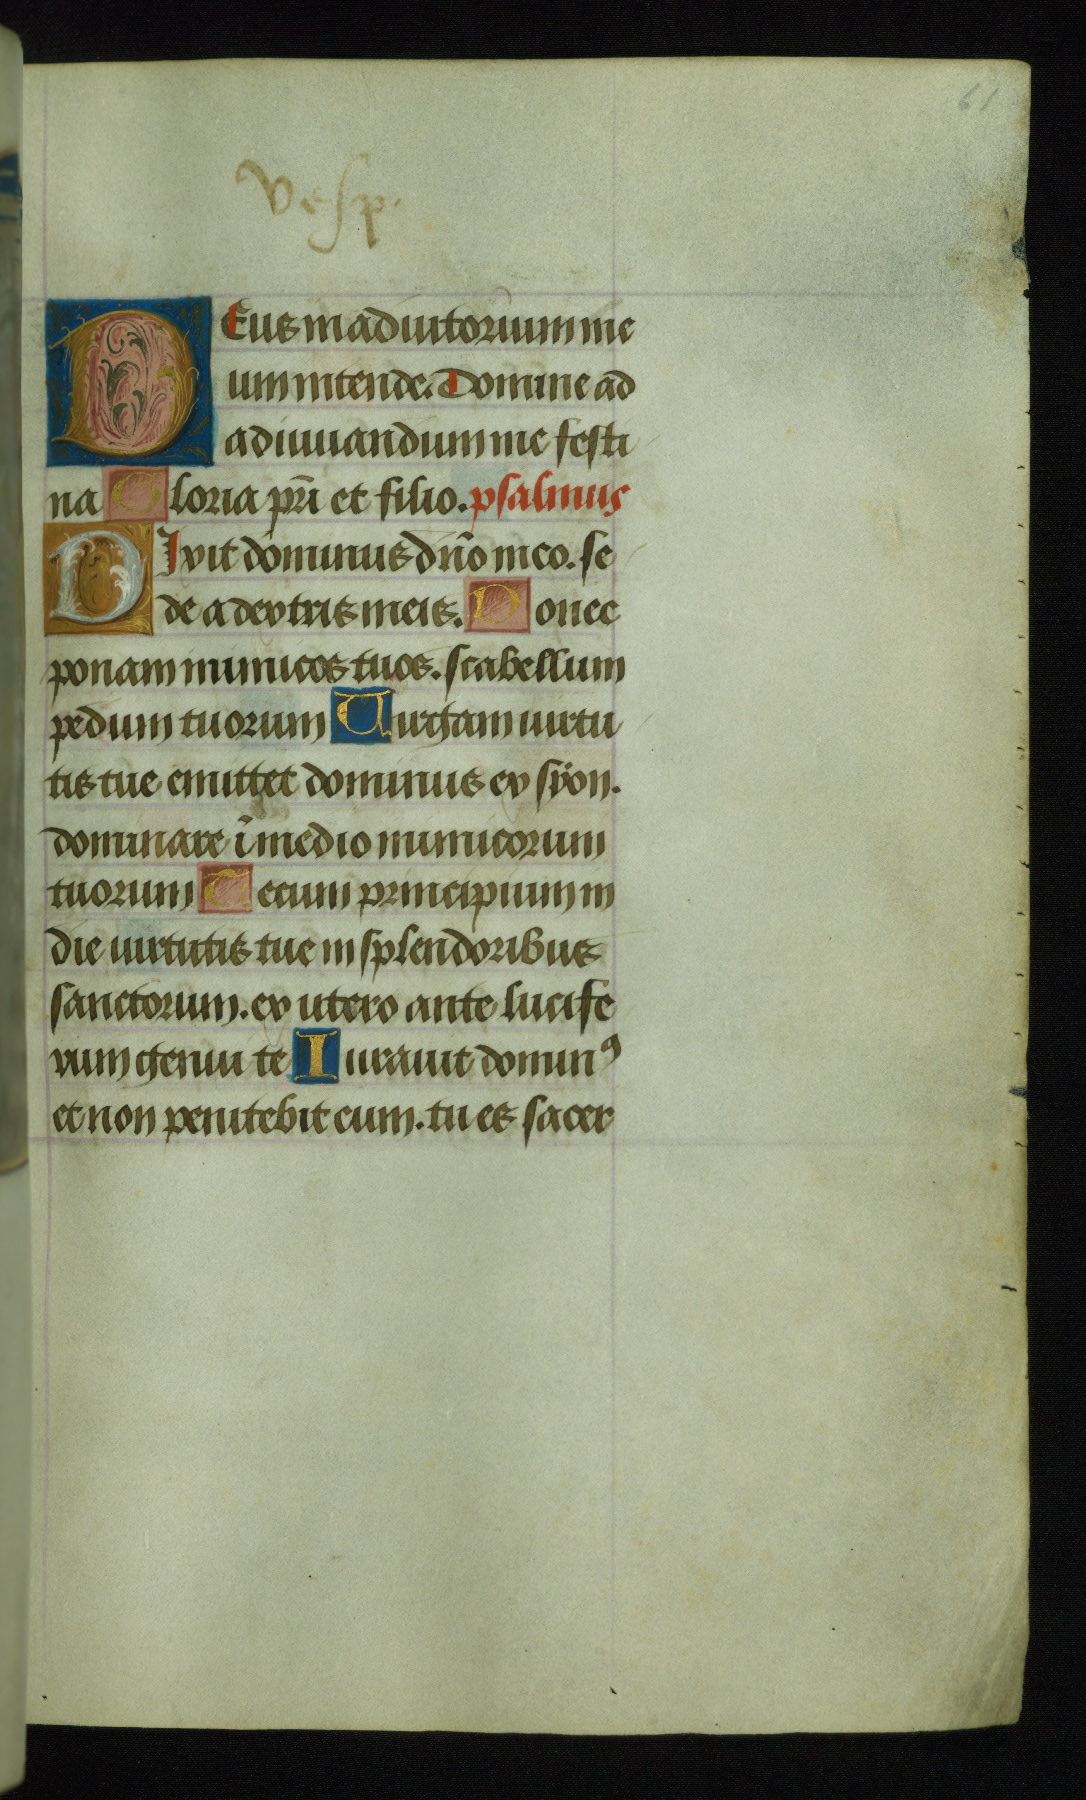 61
Vesp.
DEus in adiutorium me
um intende. Domine ad
adiuuandum me festi
na Gloria pr̄i et filio. psalmus
DIxit dominus dn̄o meo. se
de a dextris meis. Donec
ponam inimicos tuos. scabellum
pedum tuorum Uirgam uirtu
tis tue emittet dominus ex sÿon.
dominare ī medio inimicorum
tuorum Tecum principium in
die uirtutis tue in splendoribus
sanctorum. ex utero ante lucife
rum genui te Iurauit dominꝰ
et non penitebit eum. tu es sacer